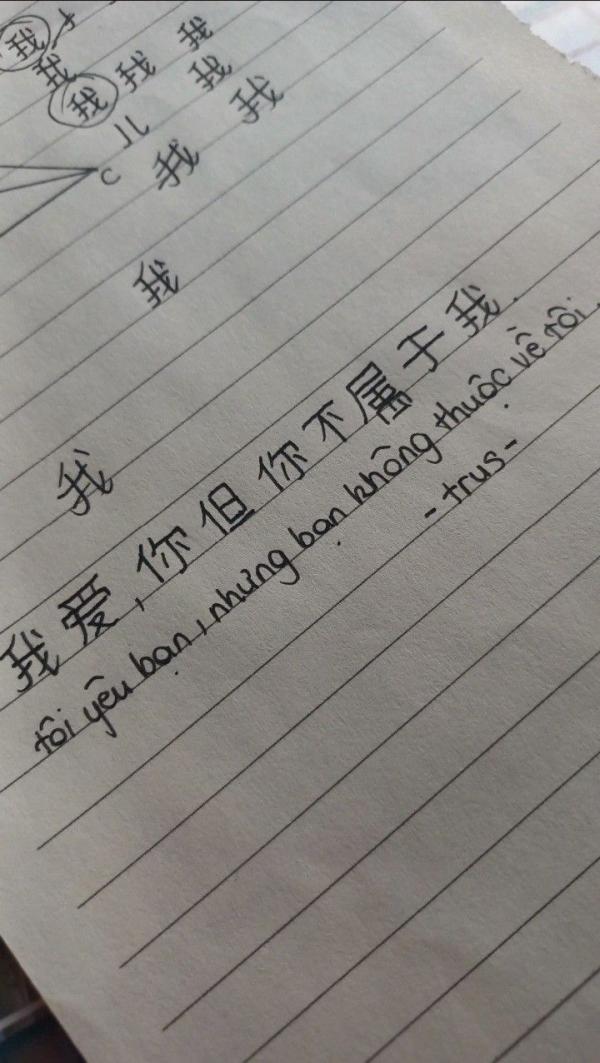 我
我
我 我 我
我
C 我 我
我
我
我爱,你但你不属于我.
tôi yêu bạn, nhưng bạn không thuộc về tôi.
-trus-